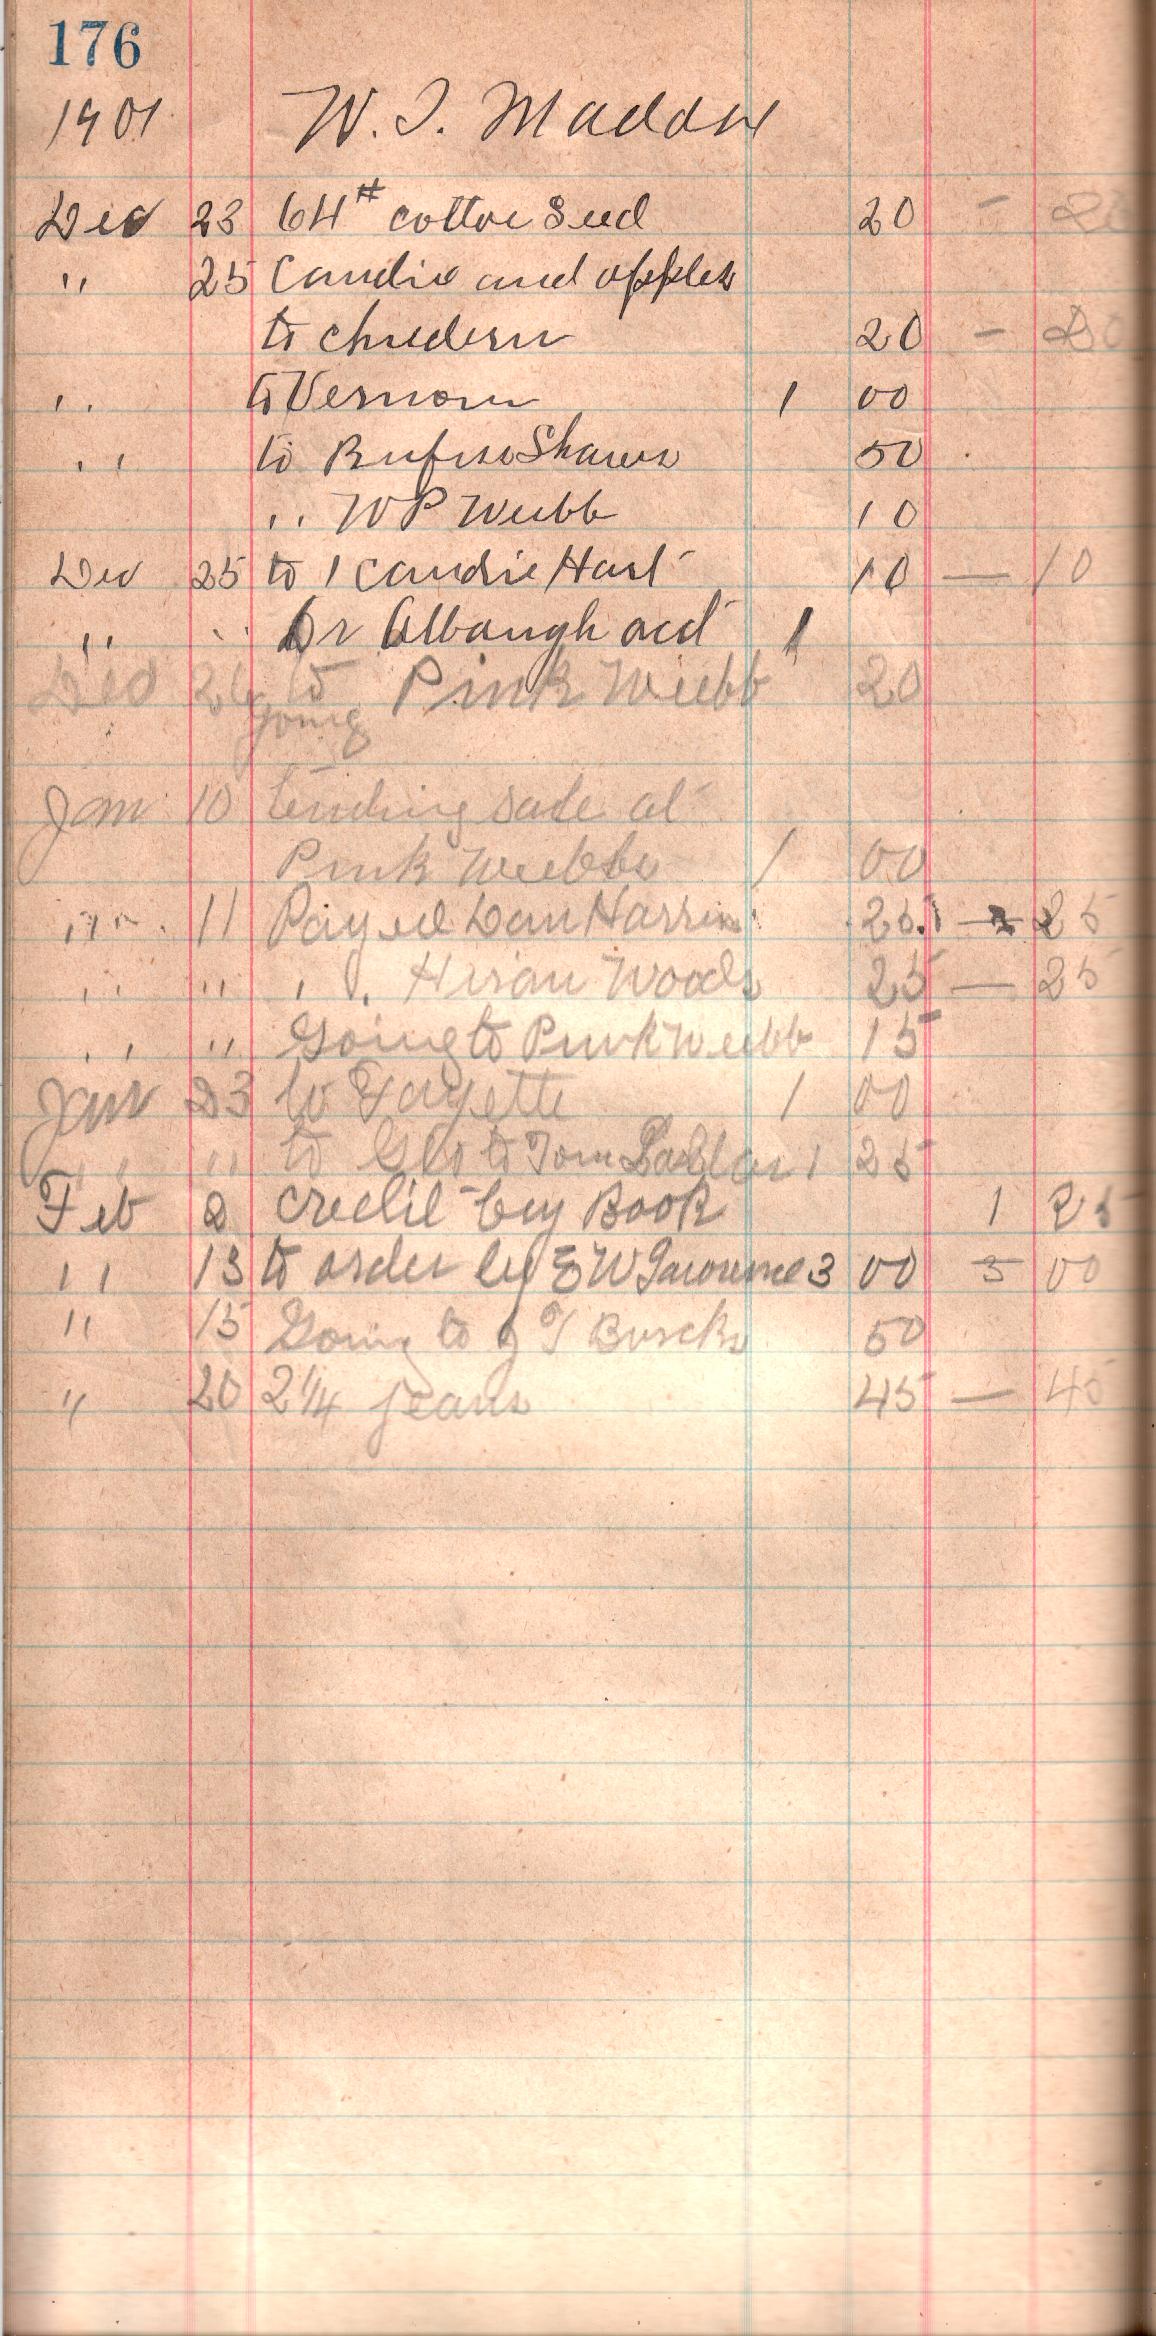 176
1901 W. I. Maddox
Dec 23 64# cotton Seed 20 - 20
" 25 Candie and apples
to chuedern 20 - 20
" to Vernon 1 00
" to Rufus Shaws 50
" W P Webb 10
Dec 25 to 1 candie Hart 10 - 10
" " Dr Albaugh act 1
Dec 26 to Pink Webb 20
going
Jan 10 tending sale at
Pink Webbs 1 00
" 11 Payed Dan Harris 25 - 25
" " " Hiram Woods 25 - 25
" " Going to Pink Webb 15
Jan 23 to Fayette 1 00
" " to to Tom 1 25
Feb 2 credit by Book 1 25
" 13 to order by E W 3 00 3 00
" 15 Going to J T 50
" 20 2 1/4 jeans 45 - 45